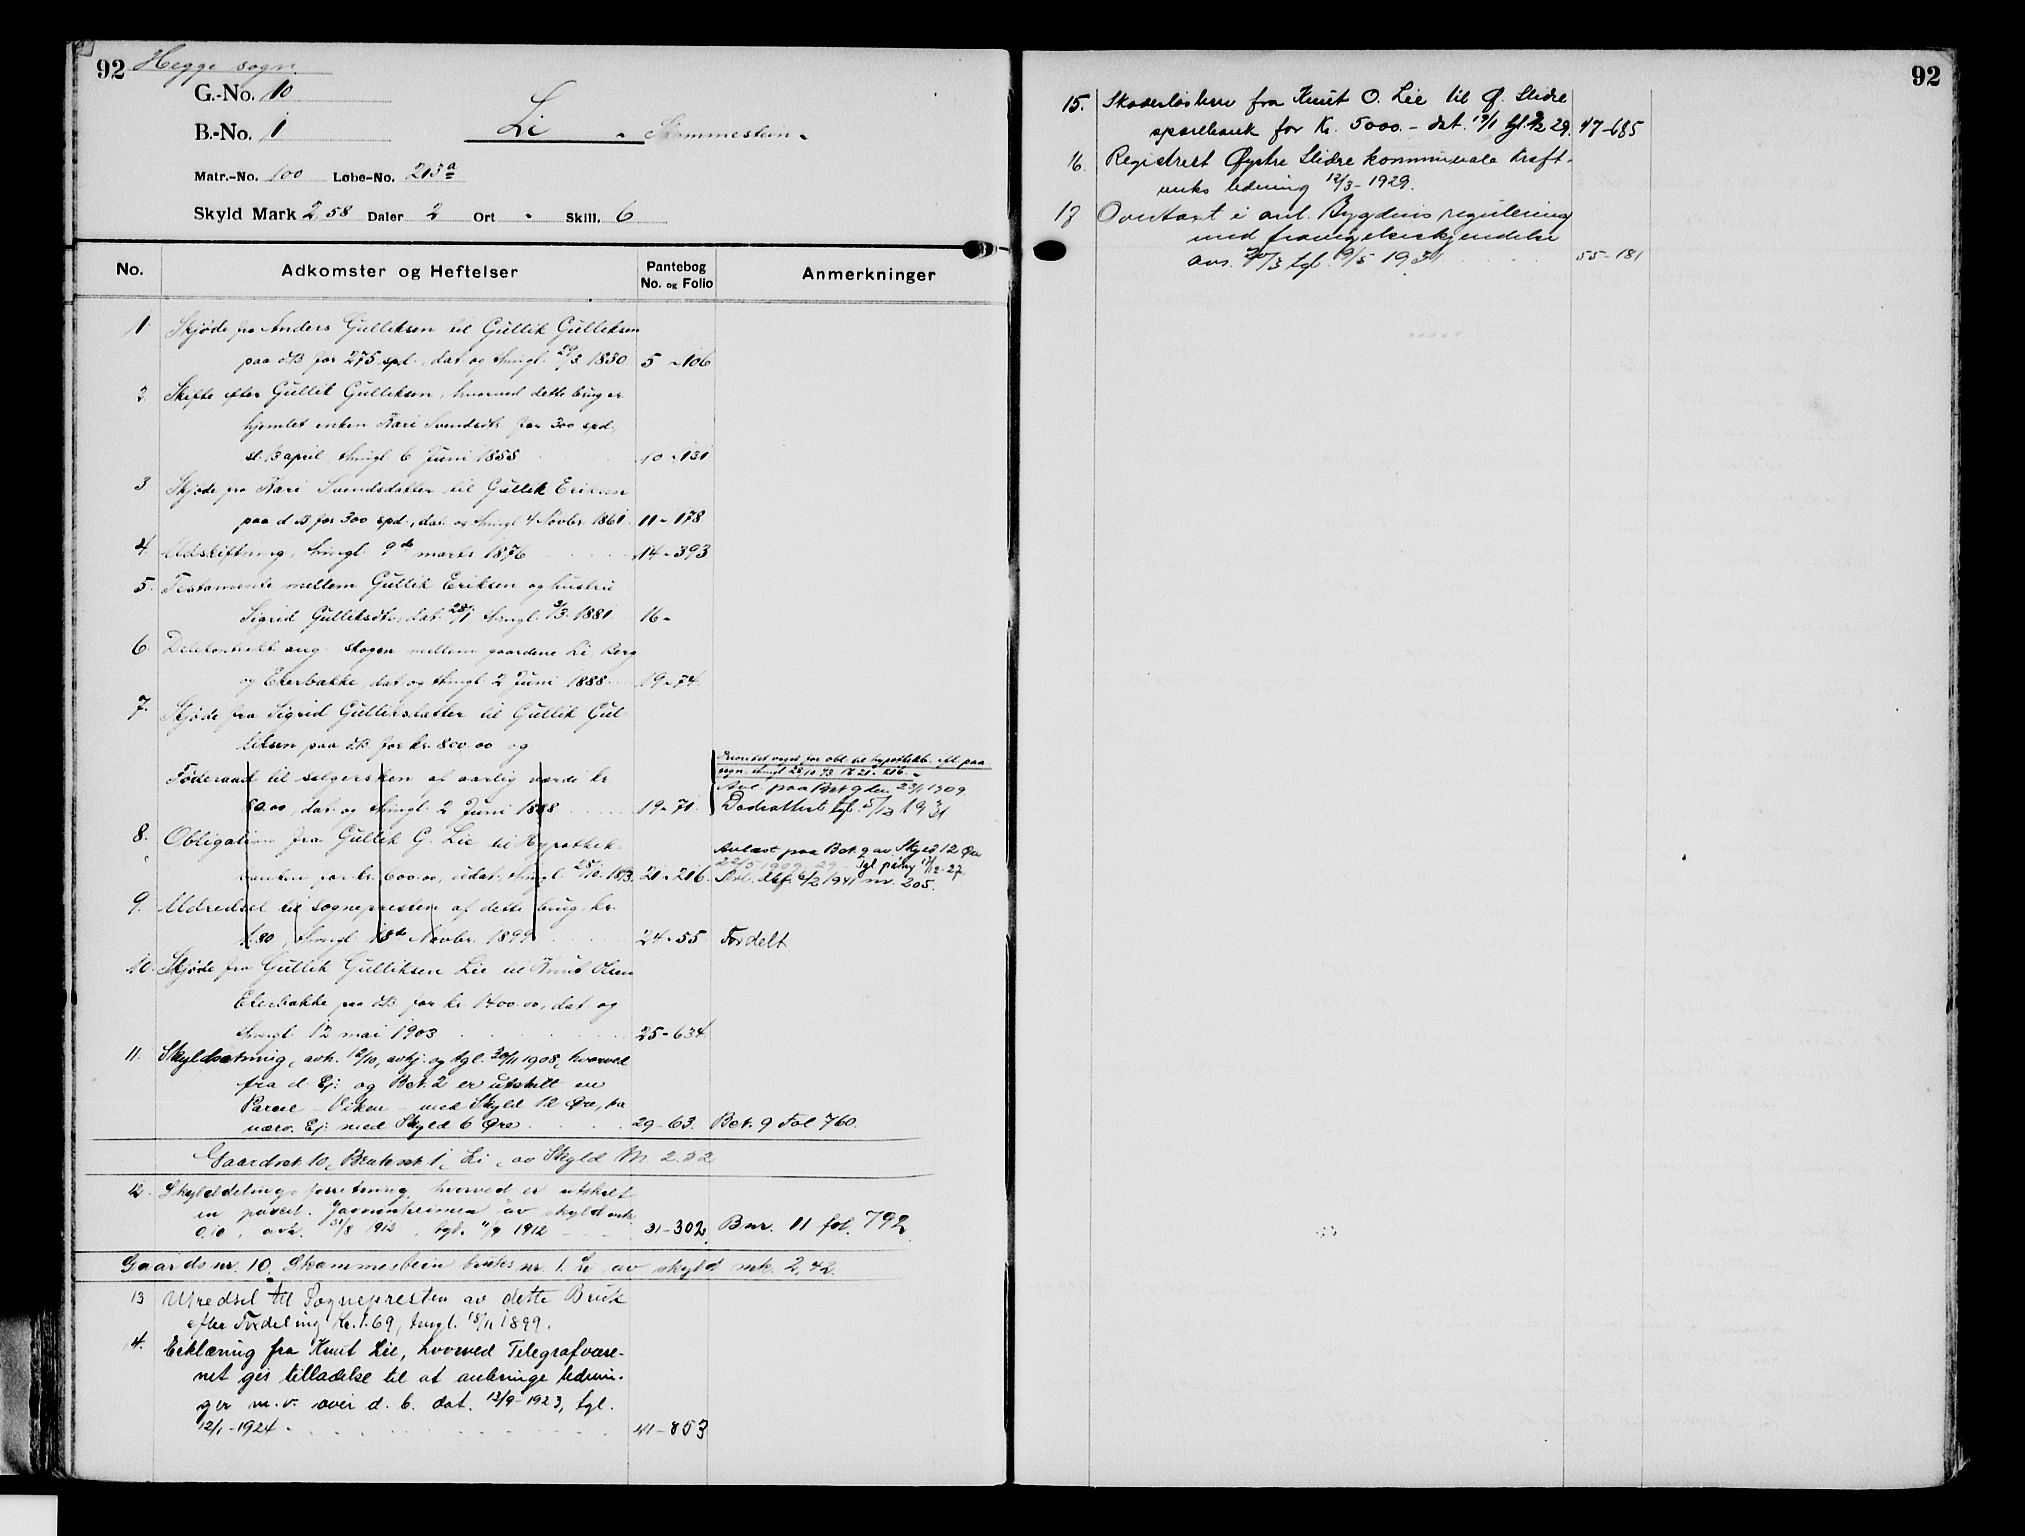 92 Hegge sogn.
G.-No. 10
B.-No. 1 Li
Matr.-No. 100 Løbe-No. 213 a
Skyld Mark 2.58 Daler 2 Ort - Skill. 6
No. Adkomster og Heftelser Pantebog No. og Folio Anmerkninger
1. Skjøde fra Anders Gulliksen til Gullik Gulliksen
paa d.B. for 275 spd., dat. og thingl. 1830 5 - 106
2. Skifte efter Gullik Gulliksen, hvorved dette brug er
hjemlet enken Kari Svendsdtr. for 300 spd.,
sl. 13 april, thingl. 6 Juni 1855 10 - 131
3 Skjøde fra Kari Svendsdatter til Gullik Eriksen
paa d.B. for 300 spd., dat. og thingl. 4 Novbr. 1861 11 - 178
4. Udskiftning, thingl. 9de marts 1876 14 - 393
5. Testamente mellem Gullik Eriksen og hustru
Sigrid Gulliksdtr., dat. 28/1 thingl. 2/3 1881 16 -
6. Delekontrakt ang. skogen mellem gaardene Li, Berg
og Ekerbakke, dat. og thingl. 2 Juni 1888 19 - 74
7. Skjøde fra Sigrid Gulliksdatter til Gullik Gul-
liksen paa d.B. for kr. 800.00 og
Føderaad til selgersken af aarlig værdi kr.
80.00, dat. og thingl. 2 Juni 1888 19 - 71
Avl. paa Bet. 9 den 1909
Dødsattest tgl. 5/12 1931
8. Obligation fra Gullik G. Lie til Hypothek-
banken for kr. 600.00, udat., thingl. 28/10 1893. 21 - 216.
Avlæst paa Bet. 9 av Skyld 12 Øre
Tgl. påny 17/12-27.
Avl. 6/2 1941 nr. 205.
9. Udredsel til sognepresten af dette brug, kr.
1.80, thingl. 18de Novbr. 1899 24 - 55 Fordelt
10. Skjøde fra Gullik Gulliksen Lie til Knut Olsen
Ekerbakke paa d.B. for kr. 1400.00, dat. og
thingl. 12 mai 1903 25 - 634
11. Skyldsætning, avh. 12/10, avhj. og tgl. 30/11 1908, hvorved
fra d. Ej. og Bet. 2 er utskilt en
Parcel - Viken - med Skyld 12 Øre, fra
nærv. Ej. med Skyld 6 Øre 29 - 63. Bet. 9 Fol. 760.
Gaardsnr. 10, Bruksnr. 1, Li, av Skyld M. 2.52
12. Skylddelingsforretning, hvorved er utskilt
en parcel av skyld mk.
0.10, avh. 31/8 1912, tgl. 11/9 1912 31 - 302. Bnr. 11 fol. 792
Gaardsnr. 10. Skammestein bruksnr. 1. Li av skyld mk. 2,42.
13 Utredsel til Sognepresten av dette Bruk
efter Fordeling Kr. 1.69, tingl. 18/11 1899.
14. Erklæring fra Knut Lie, hvorved Telegrafvæse-
net gis tilladelse til at anbringe lednin-
ger m.v. over d. b. dat. 13/9-1923, tgl.
12/1-1924 41 - 853
92
15. Skadesløsbrev fra Knut O. Lie til Ø. Slidre
sparebank for Kr. 5000.- dat. 19/1 tgl. 29. 47-685
16. Registrert Øystre Slidre kommunale kraft-
verks ledning 12/3-1929.
17 Overtaxt i anl. Bygdins regulering
med fravigelseskjendelse
avs. 20/3 tgl. 9/5 1931 55-181